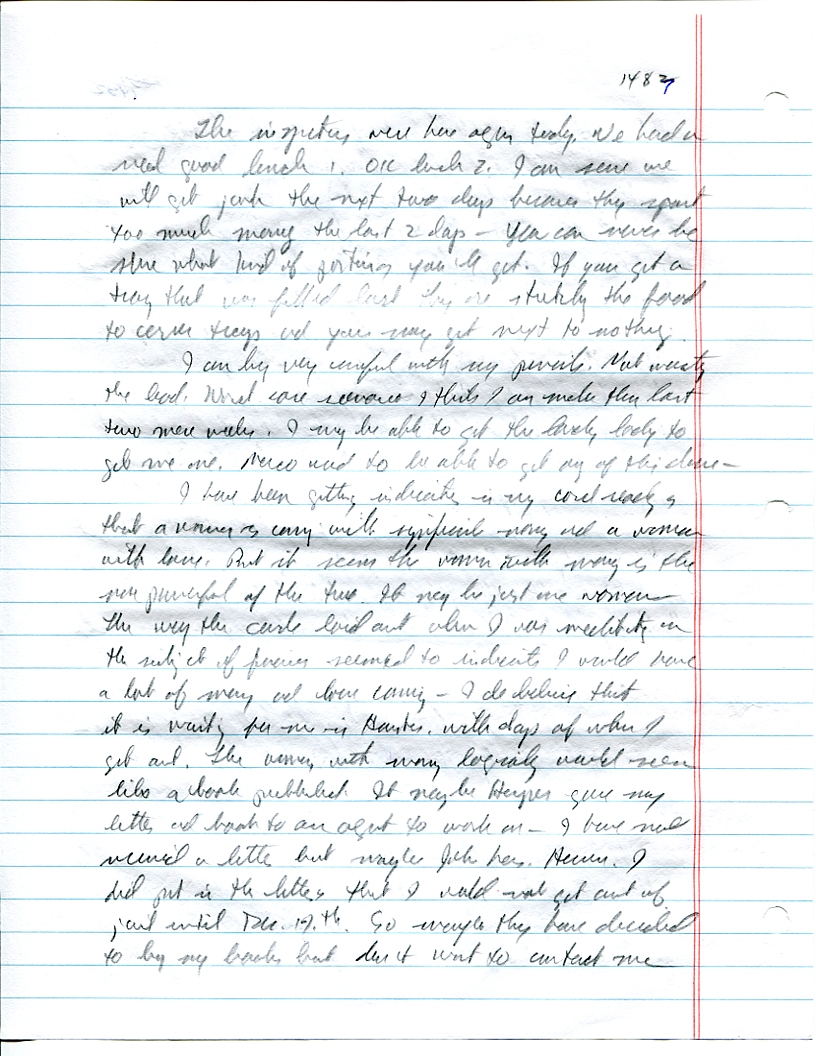 1483
The inspectors were here again today. We had a
real good lunch 1. OK lunch 2. I am sure we
will get junk the next two days because they spent
too much money the last 2 days - You can never be
sure what kind of portions you'll get. If you get a
tray that was filled last they are stretching the food
to cover trays and you may get next to nothing.
I am being very careful with my pencils. Not wasting
the lead. Worst case I think I can make them last
two more weeks. I may be able to get the lovely lady to
get me one. used to be able to get any of this done -
I have been getting in my card readings
that a woman is coming with significant money and a woman
with love. But it seems the woman with money is the
more powerful of the two. It may be just one woman
The way the cards laid out when I was meditating on
the subject of seemed to indicate I would have
a lot of money and love coming - I do believe that
it is waiting for me in with days of when I
get out. The woman with money logically would seem
like a book published. It maybe Harper gave my
letter and book to an agent to work on - I have not
received a letter but maybe John has. I
did put in the letters that I would not get out of
jail until Dec. 19.th. So maybe they have decided
to buy my books but don't want to contact me